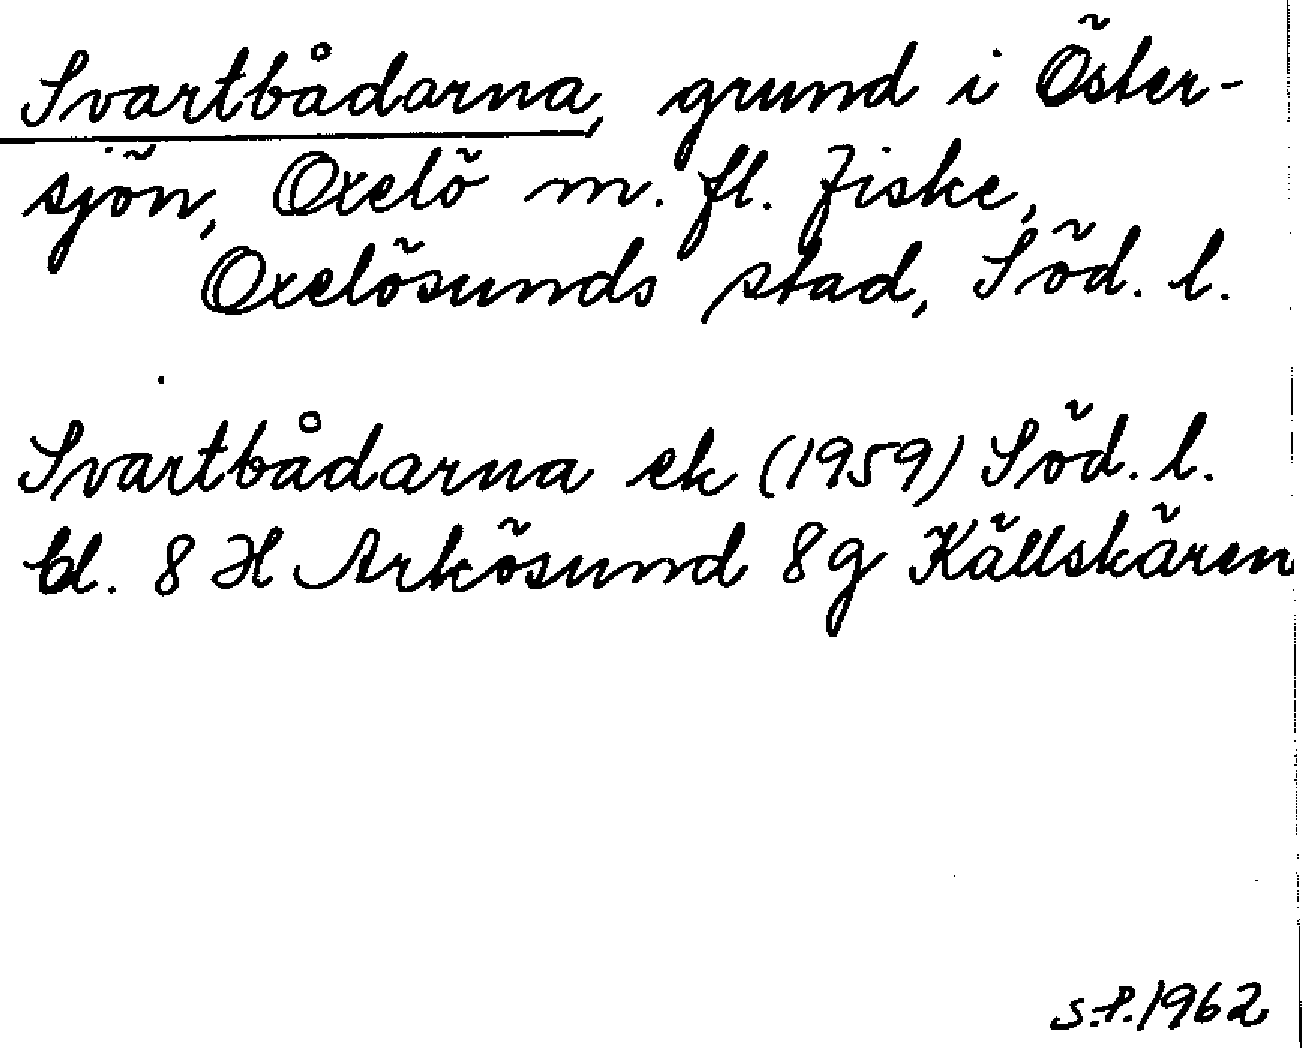 Svartbådarna, grund i Öster-
sjön, Oxelö m. fl. fiske,
Oxelösunds stad, Söd. l.
Svartbådarna ek (1959) Söd. l.
bl. 8 H Arkösund 8g Källskären
S.P. 1962